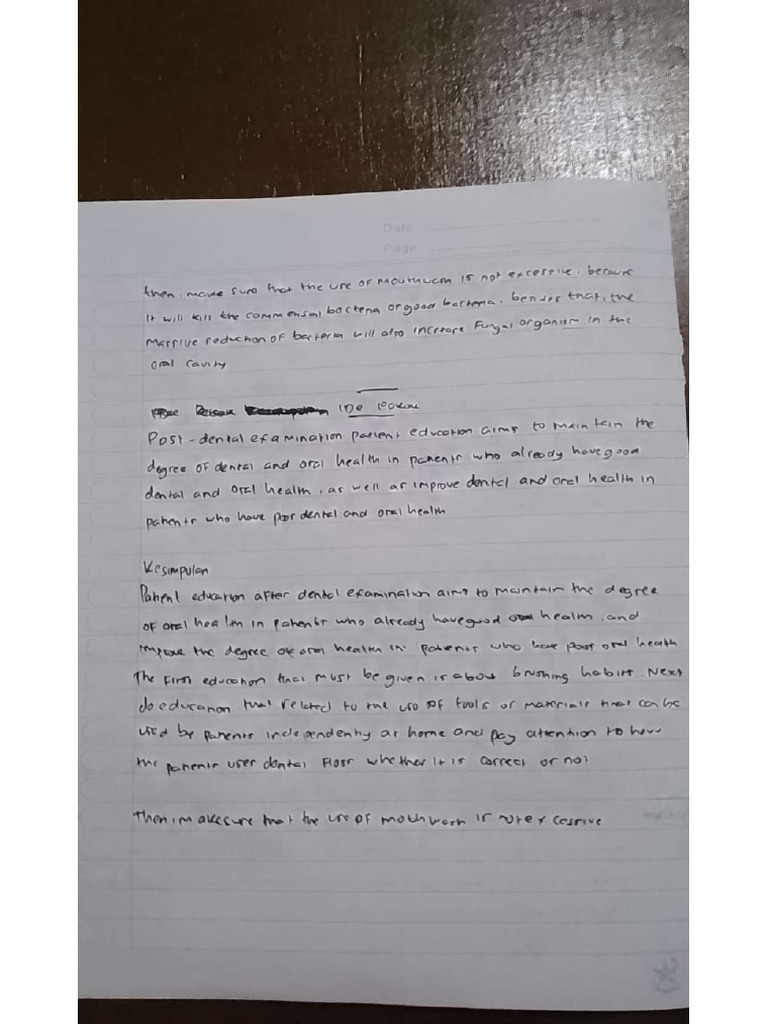 Date
Page
then, make sure that the use of mouthwash is not excessive, because
it will kill the commensal bacteria or good bacteria, besides that, the
Massive reduction of bacteria will also increase Fungal organism in the
oral cavity
Ide Pokok
Post-dental examination patient education aims to maintain the
degree of dental and oral health in patients who already have good
dental and oral health, as well as improve dental and oral health in
patients who have poor dental and oral health
Kesimpulan
Patient education after dental examination aims to maintain the degree
of oral health in patients who already have good health, and
improve the degree of oral health in patients who have poor oral health
The first education that must be given is about brushing habits. Next
do education that related to the use of tools or materials that can be
used by patients independently at home and pay attention to how
the patients user dental floss whether it is correct or not
Then, make sure that the use of mothwash is not excessive